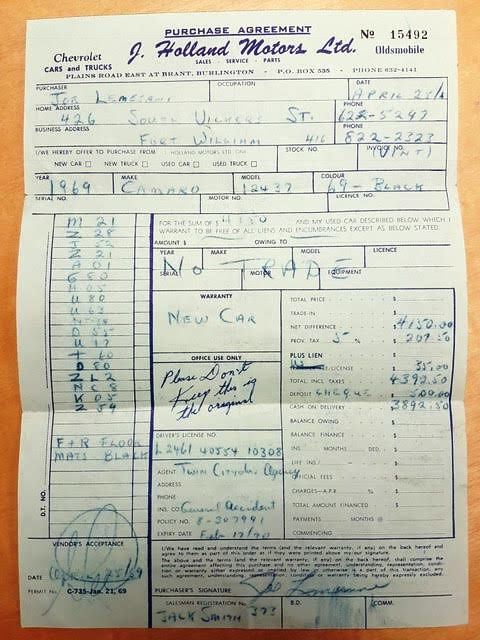 PURCHASE AGREEMENT
Nº 15492
Chevrolet
CARS and TRUCKS
J. Holland Motors Ltd.
SALES - SERVICE - PARTS
Oldsmobile
PLAINS ROAD EAST AT BRANT, BURLINGTON - P.O. BOX 535 - PHONE 632-4141
PURCHASER
OCCUPATION
DATE
JOE
APRIL 25/
HOME ADDRESS
PHONE
426 SOUTH VICKERS ST. 622-5297
BUSINESS ADDRESS
PHONE
FORT WILLIAM 416 822-2323
I/WE HEREBY OFFER TO PURCHASE FROM HOLLAND MOTORS LTD. ONE
STOCK NO.
INVOICE NO.
NEW CAR NEW TRUCK USED CAR USED TRUCK
(VINT)
YEAR MAKE MODEL COLOUR
1969 CAMARO 12437 69 - BLACK
SERIAL NO. MOTOR NO. LICENCE NO.
M 21
Z 28
J 52
Z 21
A 01
G 80
H 05
U 80
U 63
D 55
U 17
T 60
D 80
Z L 2
N C 8
K 05
Z 54
F + R FLOOR
MATS BLACK
D.T. NO.
FOR THE SUM OF $ 4150 AND MY USED CAR DESCRIBED BELOW WHICH I
WARRANT TO BE FREE OF ALL LIENS AND ENCUMBRANCES EXCEPT AS BELOW STATED.
AMOUNT $ OWING TO
YEAR MAKE MODEL LICENCE
NO TRADE
SERIAL MOTOR EQUIPMENT
WARRANTY
NEW CAR
OFFICE USE ONLY
Please Don't
Keep this is
the original
DRIVER'S LICENSE NO.
L2461 40554 10308
AGENT Twin City Agency
ADDRESS
PHONE
INS. CO. General Accident
POLICY NO. 8-307991
EXPIRY DATE Feb 17/70
TOTAL PRICE $
TRADE-IN $
NET DIFFERENCE $ 4150.00
PROV. TAX 5 % $ 207.50
PLUS LIEN
LICENSE $ 35.00
TOTAL INCL. TAXES $ 4392.50
DEPOSIT CHEQUE $ 500.00
CASH ON DELIVERY $ 3892.50
BALANCE OWING $
BALANCE FINANCE $
INS. MONTHS DED. $
LIFE INS. $
OFFICIAL FEES $
CHARGES—A.P.R. % $
TOTAL AMOUNT FINANCED $
PAYMENTS MONTHS @ $
COMMENCING
VENDOR'S ACCEPTANCE
DATE April 25/69
PERMIT NO. C-735-Jan. 21, 69
I/We have read and understand the terms (and the relevant warranty, if any) on the back hereof and
agree to them as part of this order as if they were printed above my/our signature.
The above and the terms (and the relevant warranty, if any) on the back hereof, shall comprise the
entire agreement affecting this purchase and no other agreement, understanding, representation, condition
or warranty either expressed or implied by law or otherwise is a part of this transaction, any
such agreement, understanding, condition or warranty being hereby expressly excluded.
PURCHASER'S SIGNATURE
SALESMAN REGISTRATION NO. 373
B.D.
COMM.
JACK SMITH